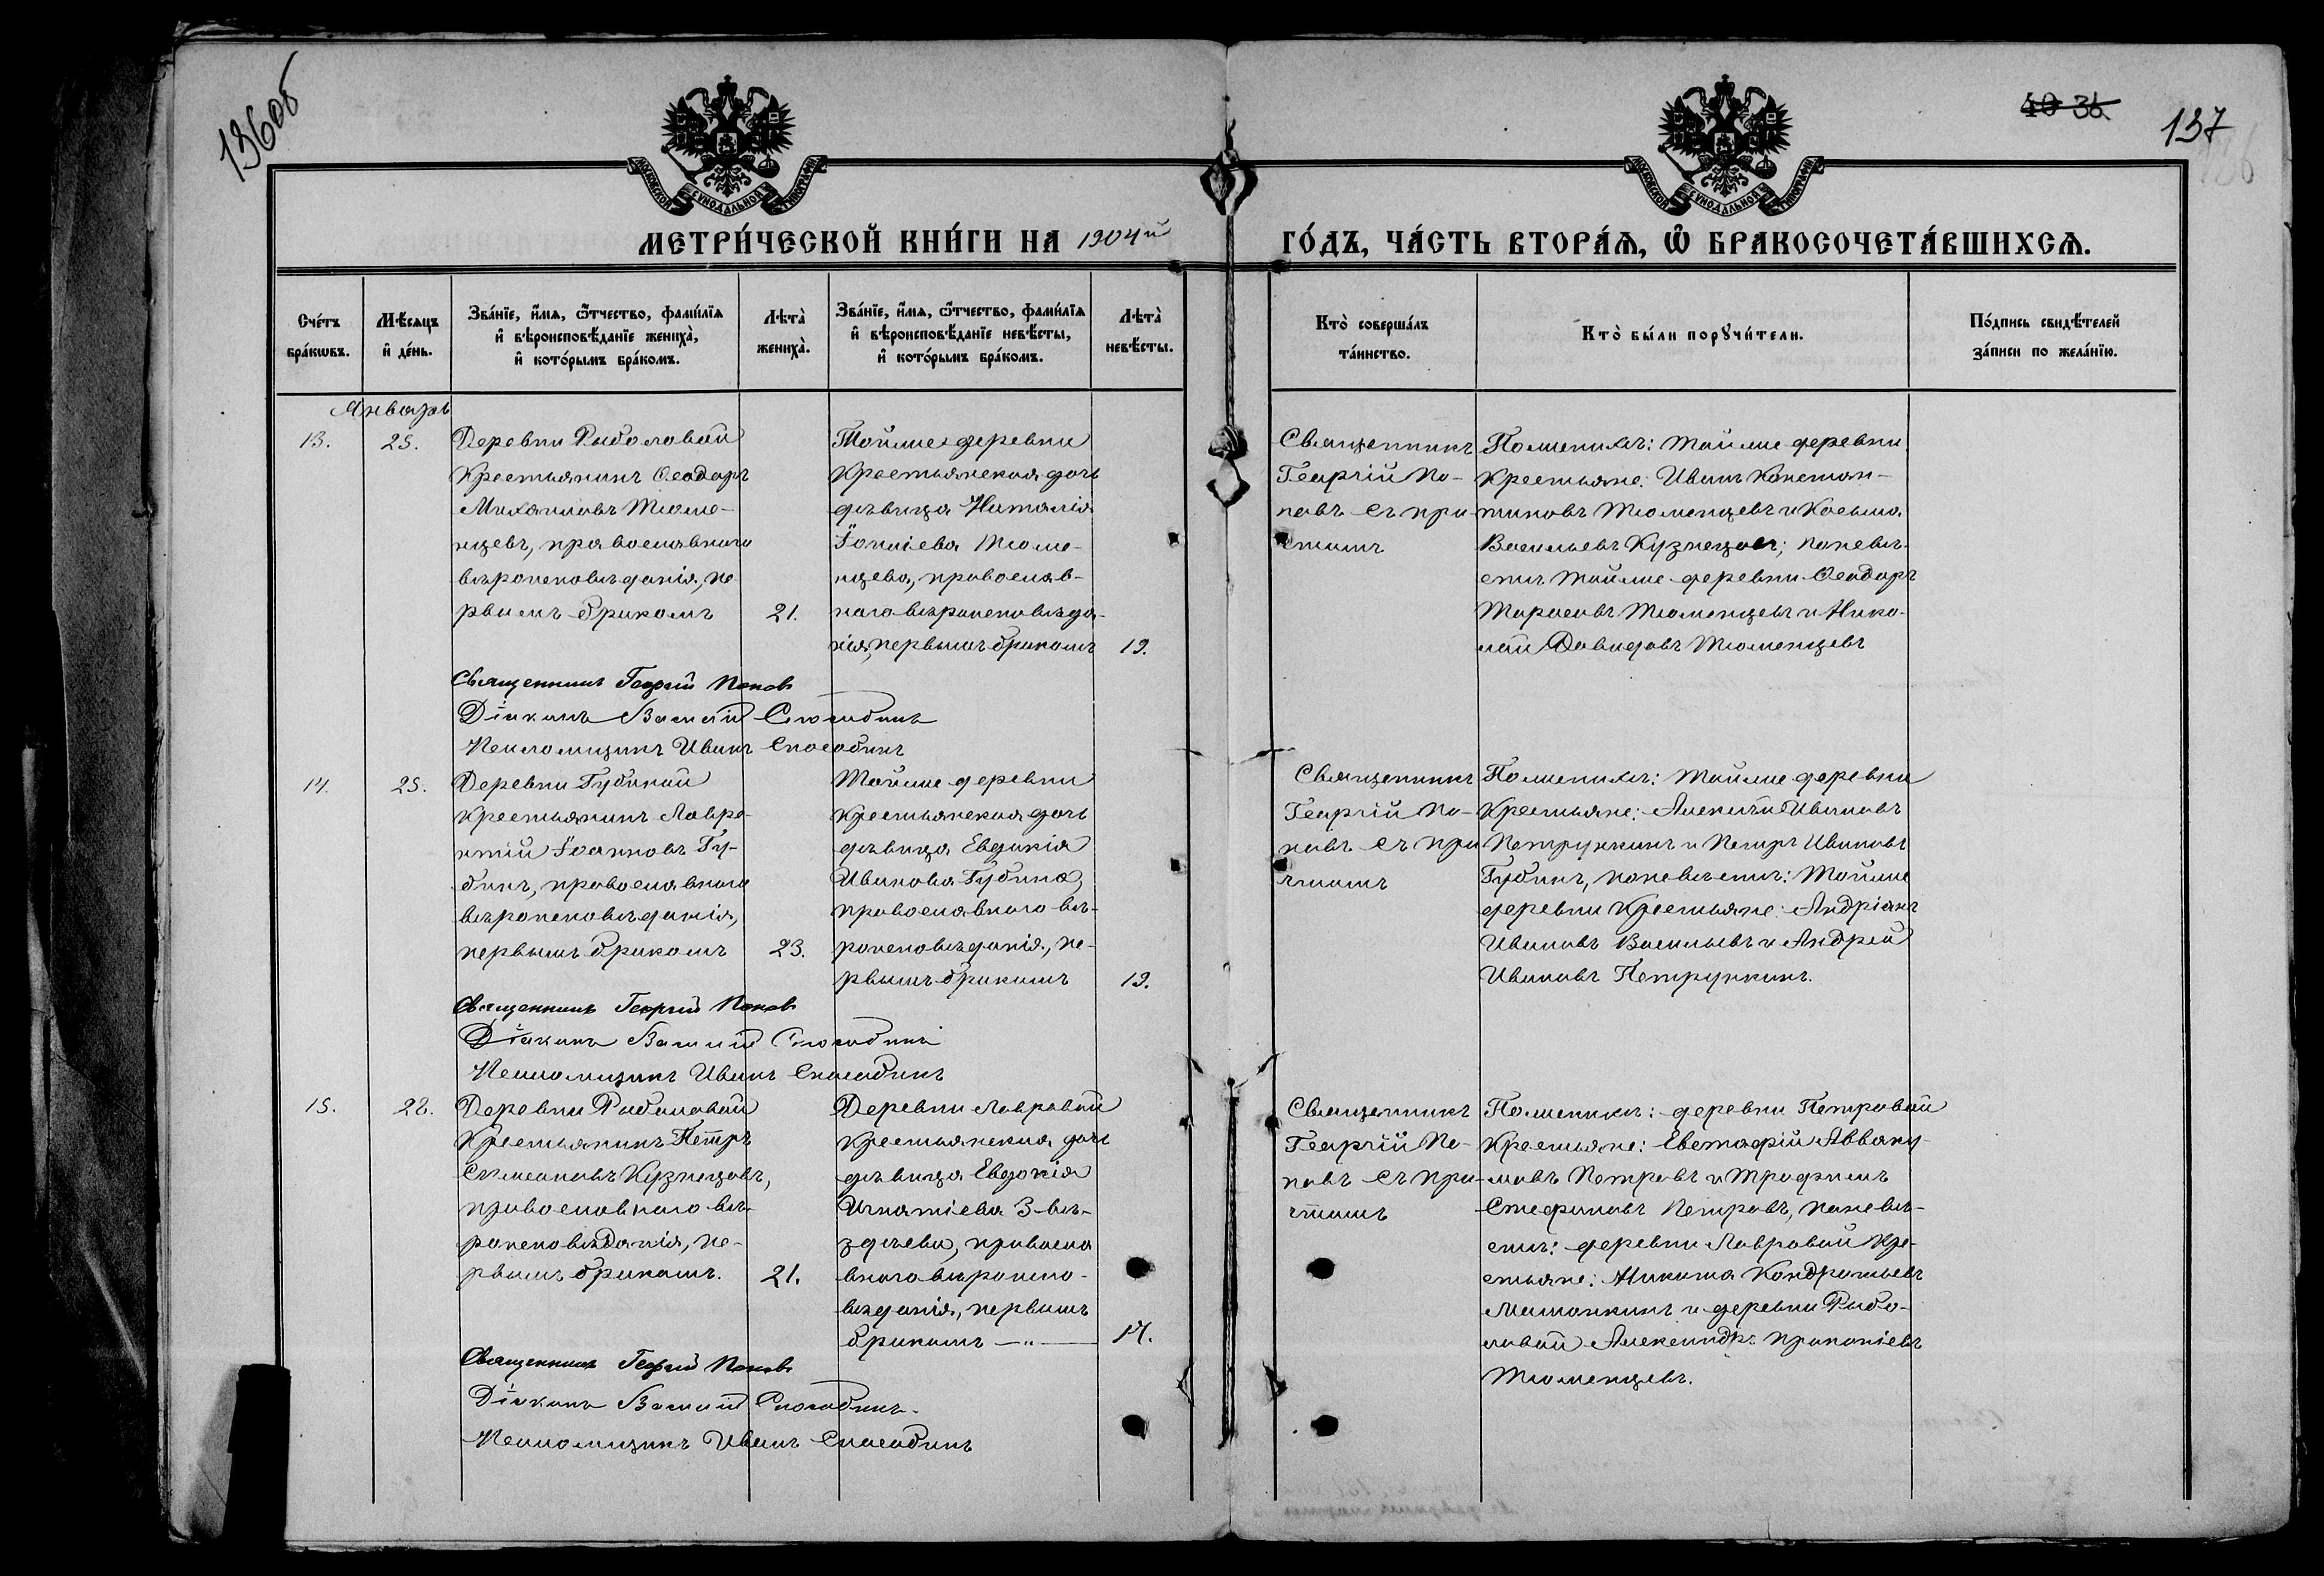 136об
40 36.
137
136
МОСКОВСКОЙ СѴНОДАЛЬНОЙ ТИПОГРАФІИ
МОСКОВСКОЙ СѴНОДАЛЬНОЙ ТИПОГРАФІИ
МЕТРИ́ЧЕСКОЙ КНИ́ГИ НА 1904й
ГО́ДЪ, ЧА́СТЬ ВТОРА́Ѧ, Ѽ БРАКОСОЧЕТА́ВШИХСѦ.
Сче́тъ бра́кѡвъ.
Мѣ́сяцъ и҆ де́нь.
Зва́нїе, и҆́мѧ, ѻ҆́тчество, фами́лїѧ и҆ вѣроисповѣ́данїе жениха̀, и҆ кото́рымъ бра́комъ.
Лѣта̀ жениха̀.
Зва́нїе, и҆́мѧ, ѻ҆́тчество, фами́лїѧ и҆ вѣроисповѣ́данїе невѣ́сты, и҆ кото́рымъ бра́комъ.
Лѣта̀ невѣ́сты.
Кто̀ соверша́лъ та́инство.
Кто̀ бы́ли порꙋчи́тели.
По́дпись свидѣ́телей за́писи по жела́нїю.
Январь
13.
25.
Деревни Рыболовой
Крестьянинъ Ѳеодоръ
Михаиловъ Тюме-
нцевъ, православнаго
вѣроисповѣданія, пе
рвымъ бракомъ
21.
Тойже деревни
Крестьянская дочь
дѣвица Наталія
Тюме-
нцева, православ-
наго вѣроисповѣда-
нія, первымъ бракомъ
19.
Священникъ
Георгій По-
повъ съ при-
чтомъ
По женихѣ: тойже деревни
Крестьяне: Иванъ Констан-
тиновъ Тюменцевъ и Косьма
Васильевъ Кузнецовъ; по невѣ-
стѣ тойже деревни Ѳеодоръ
Тарасовъ Тюменцевъ и Нико-
лай Давидовъ Тюменцевъ
Священникъ Георгій Поповъ
Діаконъ Василій Способинъ
Псаломщикъ Иванъ Способинъ
14.
25.
Деревни Губиной
Крестьянинъ Лавре-
нтій Іоанновъ Гу-
бинъ, православнаго
вѣроисповѣданія,
первымъ бракомъ
23.
Тойже деревни
Крестьянская дочь
дѣвица Евдокія
Иванова Губина,
православнаго вѣ-
роисповѣданія, пе-
рвымъ бракомъ
19.
Священникъ
Георгій По-
повъ съ при
чтомъ
По женихѣ: тойже деревни
Крестьяне: Алексѣй Ивановъ
Петрункинъ и Петръ Ивановъ
Губинъ, по невѣстѣ: тойже
деревни Крестьяне: Андріанъ
Ивановъ Васильевъ и Андрей
Ивановъ Петрункинъ.
Священникъ Георгій Поповъ
Діаконъ Василій Способинъ
Псаломщикъ Иванъ Способинъ
15.
28.
Деревни Рыболовой
Крестьянинъ Петръ
Симеоновъ Кузнецовъ,
православнаго вѣ-
роисповѣданія, пе-
рвымъ бракомъ.
21.
Деревни Лавровой
Крестьянская дочь
дѣвица Евдокія
Игнатіева Звѣ-
здчева, правосла
внаго вѣроиспо-
вѣданія, первымъ
бракомъ —"—
17.
Священникъ
Георгій По-
повъ съ при-
чтомъ
По женихѣ: деревни Петровой
Крестьяне: Евстафій Авваку-
мовъ Петровъ и Трофимъ
Стефановъ Петровъ, по невѣ-
стѣ: деревни Лавровой Кре-
стьяне: Никита Кондратьевъ
Матонкинъ и деревни Рыбо-
ловой Александръ Прокопіевъ
Тюменцевъ.
Священникъ Георгій Поповъ
Діаконъ Василій Способинъ.
Псаломщикъ Иванъ Способинъ